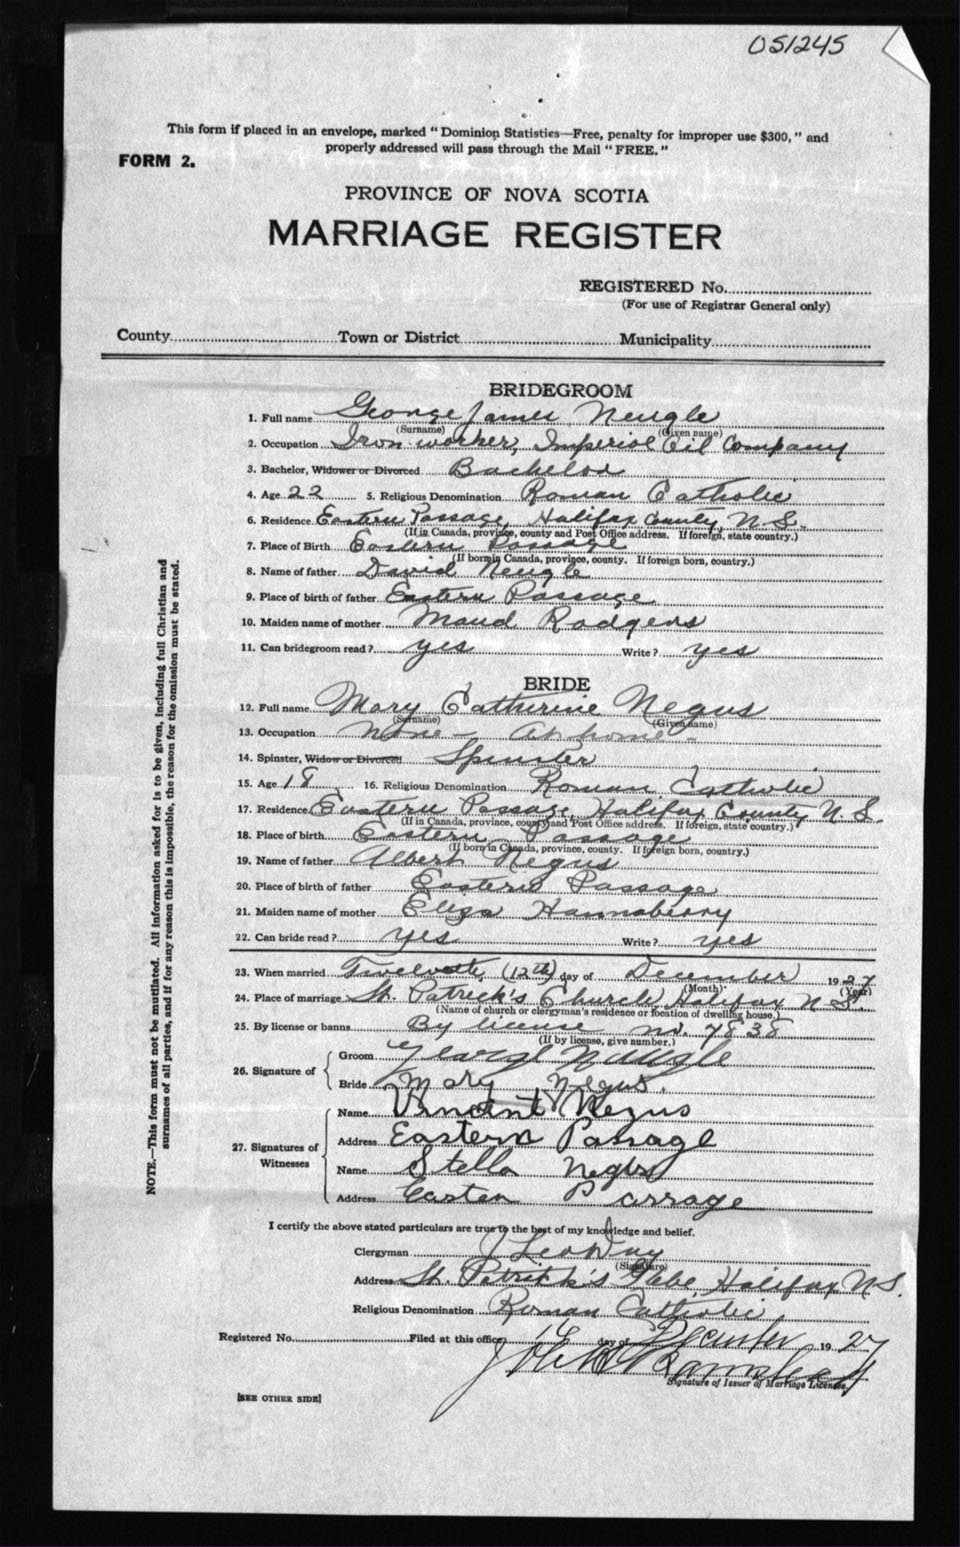 051245
This form if placed in an envelope, marked "Dominion Statistics—Free, penalty for improper use $300," and
properly addressed will pass through the Mail "FREE."
FORM 2.
PROVINCE OF NOVA SCOTIA
MARRIAGE REGISTER
REGISTERED No.
(For use of Registrar General only)
County Town or District Municipality
BRIDEGROOM
1. Full name George James Neugle
(Surname) (Given name)
2. Occupation Iron-worker, Imperial Oil Company
3. Bachelor, Widower or Divorced Bachelor
4. Age 22 5. Religious Denomination Roman Catholic
6. Residence Eastern Passage, Halifax County, N.S.
(If in Canada, province, county and Post Office address. If foreign, state country.)
7. Place of Birth Eastern Passage
(If born in Canada, province, county. If foreign born, country.)
8. Name of father David Neugle
9. Place of birth of father Eastern Passage
10. Maiden name of mother Maud Rodgers
11. Can bridegroom read? yes Write? yes
BRIDE
12. Full name Mary Catherine Negus
(Surname) (Given name)
13. Occupation None - At home -
14. Spinster, Widow or Divorced Spinster
15. Age 18 16. Religious Denomination Roman Catholic
17. Residence Eastern Passage, Halifax County N.S.
(If in Canada, province, county and Post Office address. If foreign, state country.)
18. Place of birth Eastern Passage
(If born in Canada, province, county. If foreign born, country.)
19. Name of father Albert Negus
20. Place of birth of father Eastern Passage
21. Maiden name of mother Eliza Hannaberry
22. Can bride read? yes Write? yes
23. When married Twelveth (12th) day of December 1927
(Month) (Year)
24. Place of marriage St. Patrick's Church, Halifax N.S.
(Name of church or clergyman's residence or location of dwelling house.)
25. By license or banns By license no. 7838
(If by license, give number.)
26. Signature of
Groom George Naugle
Bride Mary Negus.
27. Signatures of Witnesses
Name Vincent Negus
Address Eastern Passage
Name Stella Negus
Address Eastern Passage
I certify the above stated particulars are true to the best of my knowledge and belief.
Clergyman J. Leo
(Signature)
Address St. Patrick's Glebe, Halifax N.S.
Religious Denomination Roman Catholic
Registered No. Filed at this office 16 day of December 1927
Signature of Issuer of Marriage Licenses.
[SEE OTHER SIDE]
NOTE.—This form must not be mutilated. All information asked for is to be given, including full Christian and
surnames of all parties, and if for any reason this is impossible, the reason for the omission must be stated.